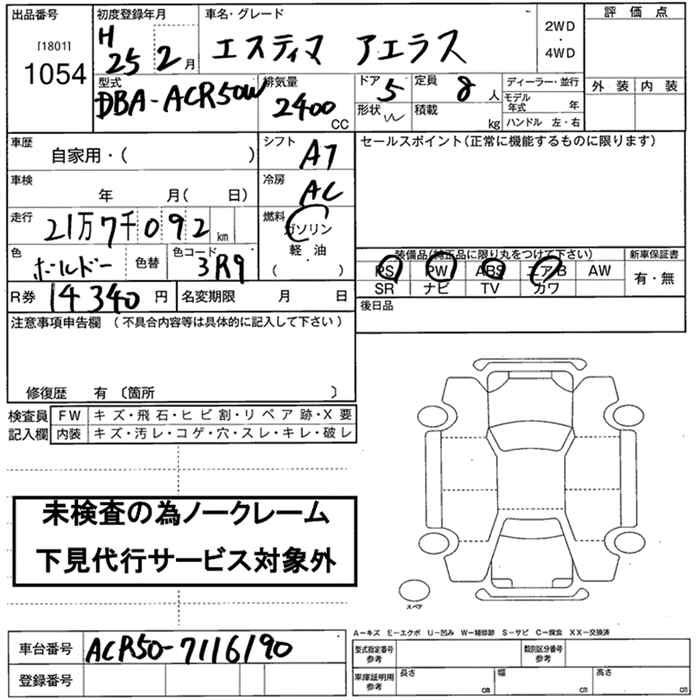 出品番号 初度登録年月 車名・グレード 評価点
[1801] 1054 H 25 2月 エスティマ アエラス 2WD・4WD
外装 内装
型式 DBA-ACR50W 排気量 2400 CC ドア 5 定員 8人 ディーラー・並行
形状 W 積載 kg モデル年式 年
ハンドル 左・右
車歴 自家用・( ) シフト AT セールスポイント(正常に機能するものに限ります)
車検 年 月( 日) 冷房 AC
走行 21万7千092km 燃料 ガソリン
軽油
( )
色 ボールドー 色替 色コード 3R9
装備品(純正品に限り丸をつけて下さい) 新車保証書
PS PW ABS エアB AW 有・無
SR ナビ TV カワ
R券 14340円 名変期限 月 日 後日品
注意事項申告欄 (不具合内容等は具体的に記入して下さい)
修復歴 有 〔箇所 〕
検査員記入欄 FW キズ・飛石・ヒビ割・リペア跡・X要
内装 キズ・汚レ・コゲ・穴・スレ・キレ・破レ
未検査の為ノークレーム
下見代行サービス対象外
スペア
A-キズ E-エクボ U-凹み W-補修跡 S-サビ C-腐食 XX-交換済
車台番号 ACR50-7116190
登録番号
型式指定番号 参考 類別区分番号 参考
車庫証明用 参考 長さ cm 幅 cm 高さ cm